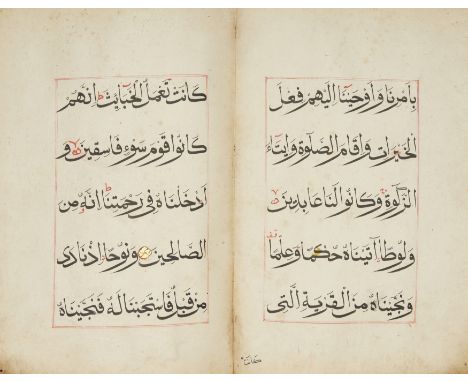 بِاَمْرِنَا وَاَوْحَيْنَا اِلَيْهِمْ فِعْلَ
الْخَيْرَاتِ وَاِقَامَ الصَّلٰوةِ وَاِيتَاءَ
الزَّكٰوةِ وَكَانُوا لَنَا عَابِدِينَ
وَلُوطًا اٰتَيْنَاهُ حُكْمًا وَعِلْمًا
وَنَجَّيْنَاهُ مِنَ الْقَرْيَةِ الَّتِى
كانت
كَانَتْ تَعْمَلُ الْخَبَائِثَ اِنَّهُمْ
كَانُوا قَوْمَ سَوْءٍ فَاسِقِينَ وَ
اَدْخَلْنَاهُ فِى رَحْمَتِنَا اِنَّهُ مِنَ
الصَّالِحِينَ وَنُوحًا اِذْ نَادٰى
مِنْ قَبْلُ فَاسْتَجَبْنَا لَهُ فَنَجَّيْنَاهُ